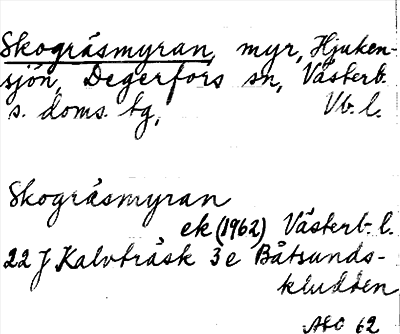 Skogråsmyran, myr, Hjuken-
sjön, Degerfors sn, Västerb.
s. doms. tg, Vb. l.
Skogråsmyran
ek (1962) Västerb. l.
22 J Kalvträsk 3e Båtsunds-
kludden
62